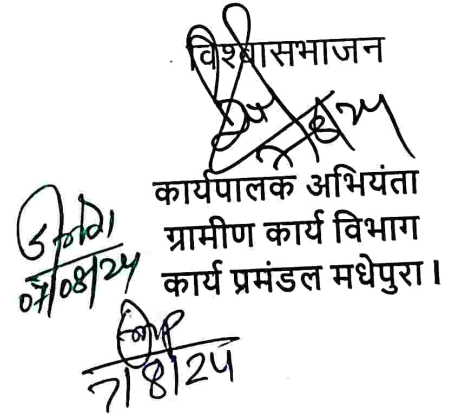 विश्वासभाजन
7/8/24
कार्यपालक अभियंता
ग्रामीण कार्य विभाग
कार्य प्रमंडल मधेपुरा।
07/08/24
7/8/24